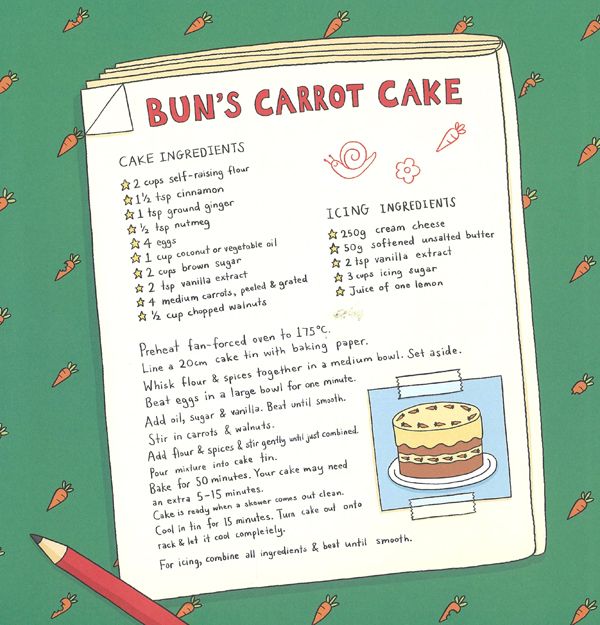 BUN'S CARROT CAKE
CAKE INGREDIENTS
2 cups self-raising flour
1½ tsp cinnamon
1 tsp ground ginger
½ tsp nutmeg
4 eggs
1 cup coconut or vegetable oil
2 cups brown sugar
2 tsp vanilla extract
4 medium carrots, peeled & grated
½ cup chopped walnuts
ICING INGREDIENTS
250g cream cheese
50g softened unsalted butter
2 tsp vanilla extract
3 cups icing sugar
Juice of one lemon
Preheat fan-forced oven to 175°C.
Line a 20cm cake tin with baking paper.
Whisk flour & spices together in a medium bowl. Set aside.
Beat eggs in a large bowl for one minute.
Add oil, sugar & vanilla. Beat until smooth.
Stir in carrots & walnuts.
Add flour & spices & stir gently until just combined.
Pour mixture into cake tin.
Bake for 50 minutes. Your cake may need
an extra 5-15 minutes.
Cake is ready when a skewer comes out clean.
Cool in tin for 15 minutes. Turn cake out onto
rack & let it cool completely.
For icing, combine all ingredients & beat until smooth.